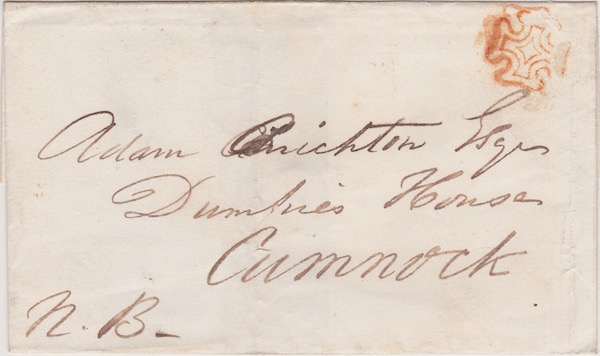 Adam Crichton Esqr
Dumfries House
Cumnock
N. B-